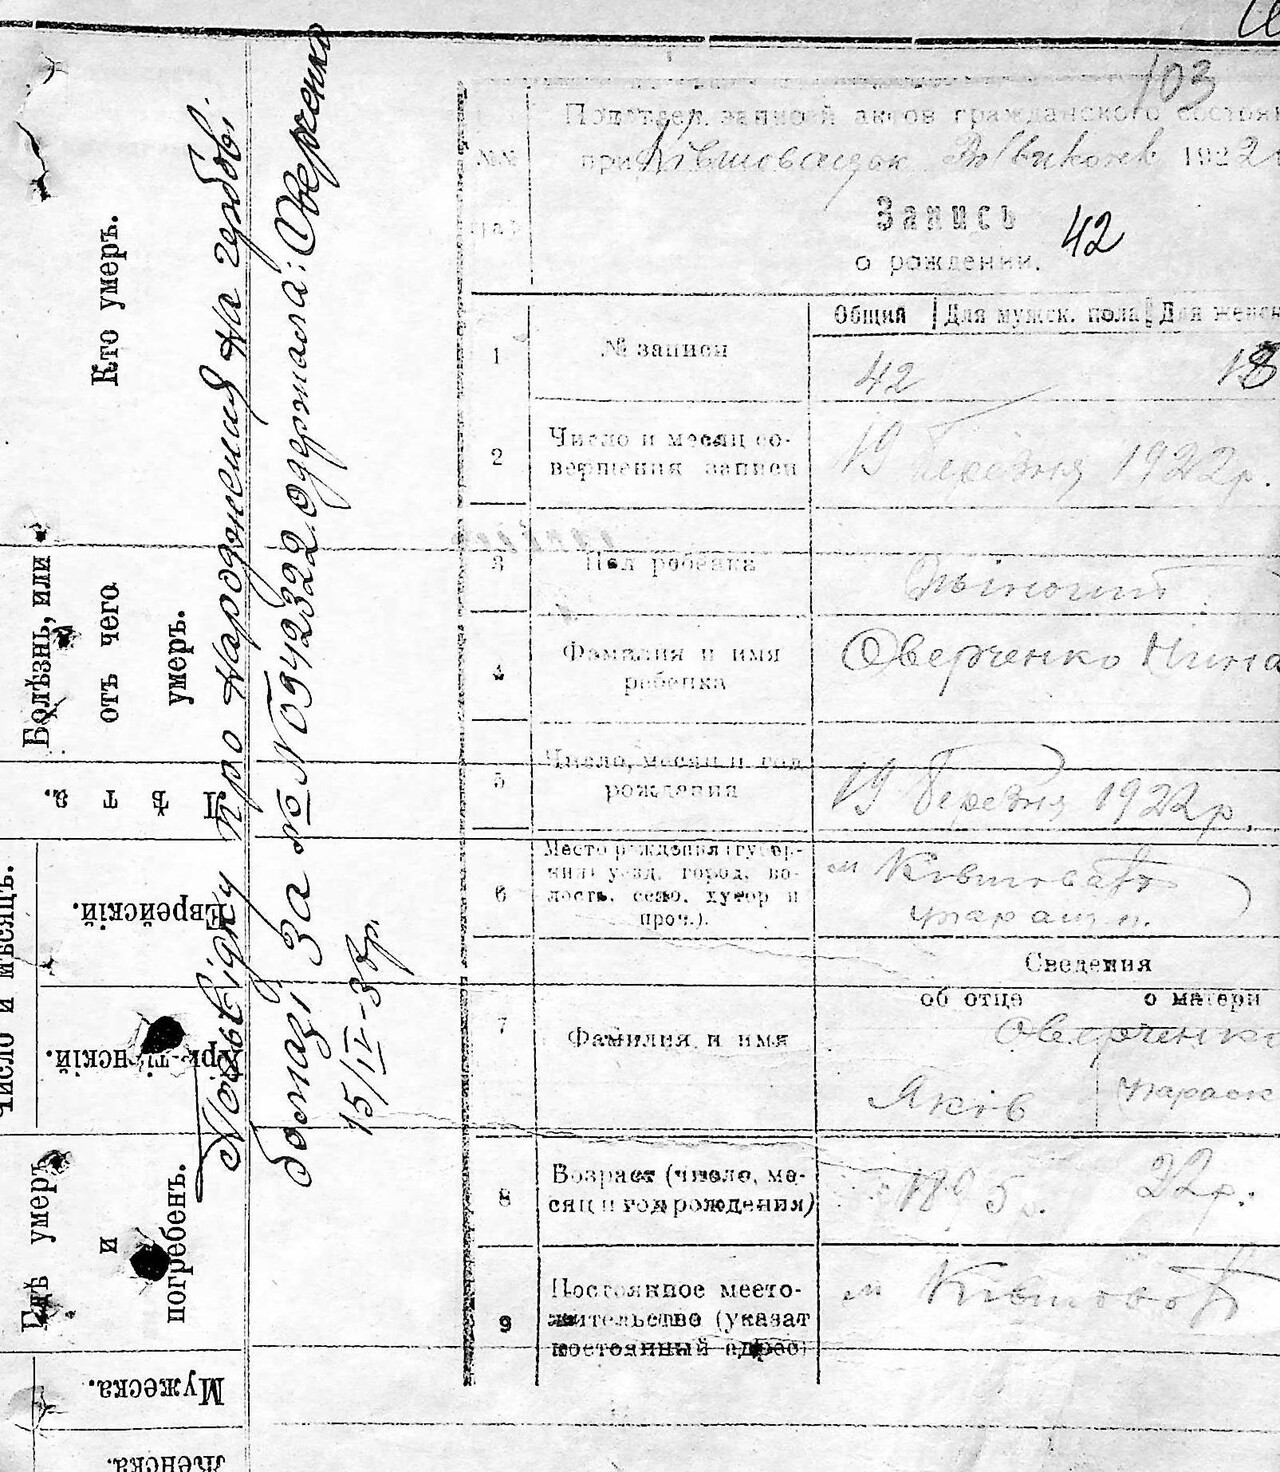 103
Подотдел записей актов гражданского состоян
при 1922
Запись 42
о рождении.
Общий Для мужск. пола Для женск
1 № записи 42 18
2 Число и месяц со-
вершения записи 19 березня 1922р.
3 Пол ребенка жіночий
4 Фамилия и имя
ребенка Оверченко Нина
5 Число, месяц и год
рождения 19 березня 1922р.
6 Место рождения (губер-
ния, уезд, город, во-
лость, село, хутор и
проч.). м Ківшовата
таращ п.
Сведения
об отце о матери
7 Фамилия и имя Оверченко
Яків Параск
8 Возраст (число, ме-
сяц и год рождения) 1895 22р.
9 Постоянное место-
жительство (указат
постоянный адрес) м Ківшовата
Посвідку про народження на гербові.
бомазі за № №0942322 одержала: Оверченко
15/IV-3 р.
Кто умеръ.
Болѣзнь, или
отъ чего
умеръ.
Лѣта.
Число и мѣсяцъ.
Еврейскій.
Христіанскій.
Гдѣ умеръ
и
погребенъ.
Мужеска.
Женска.